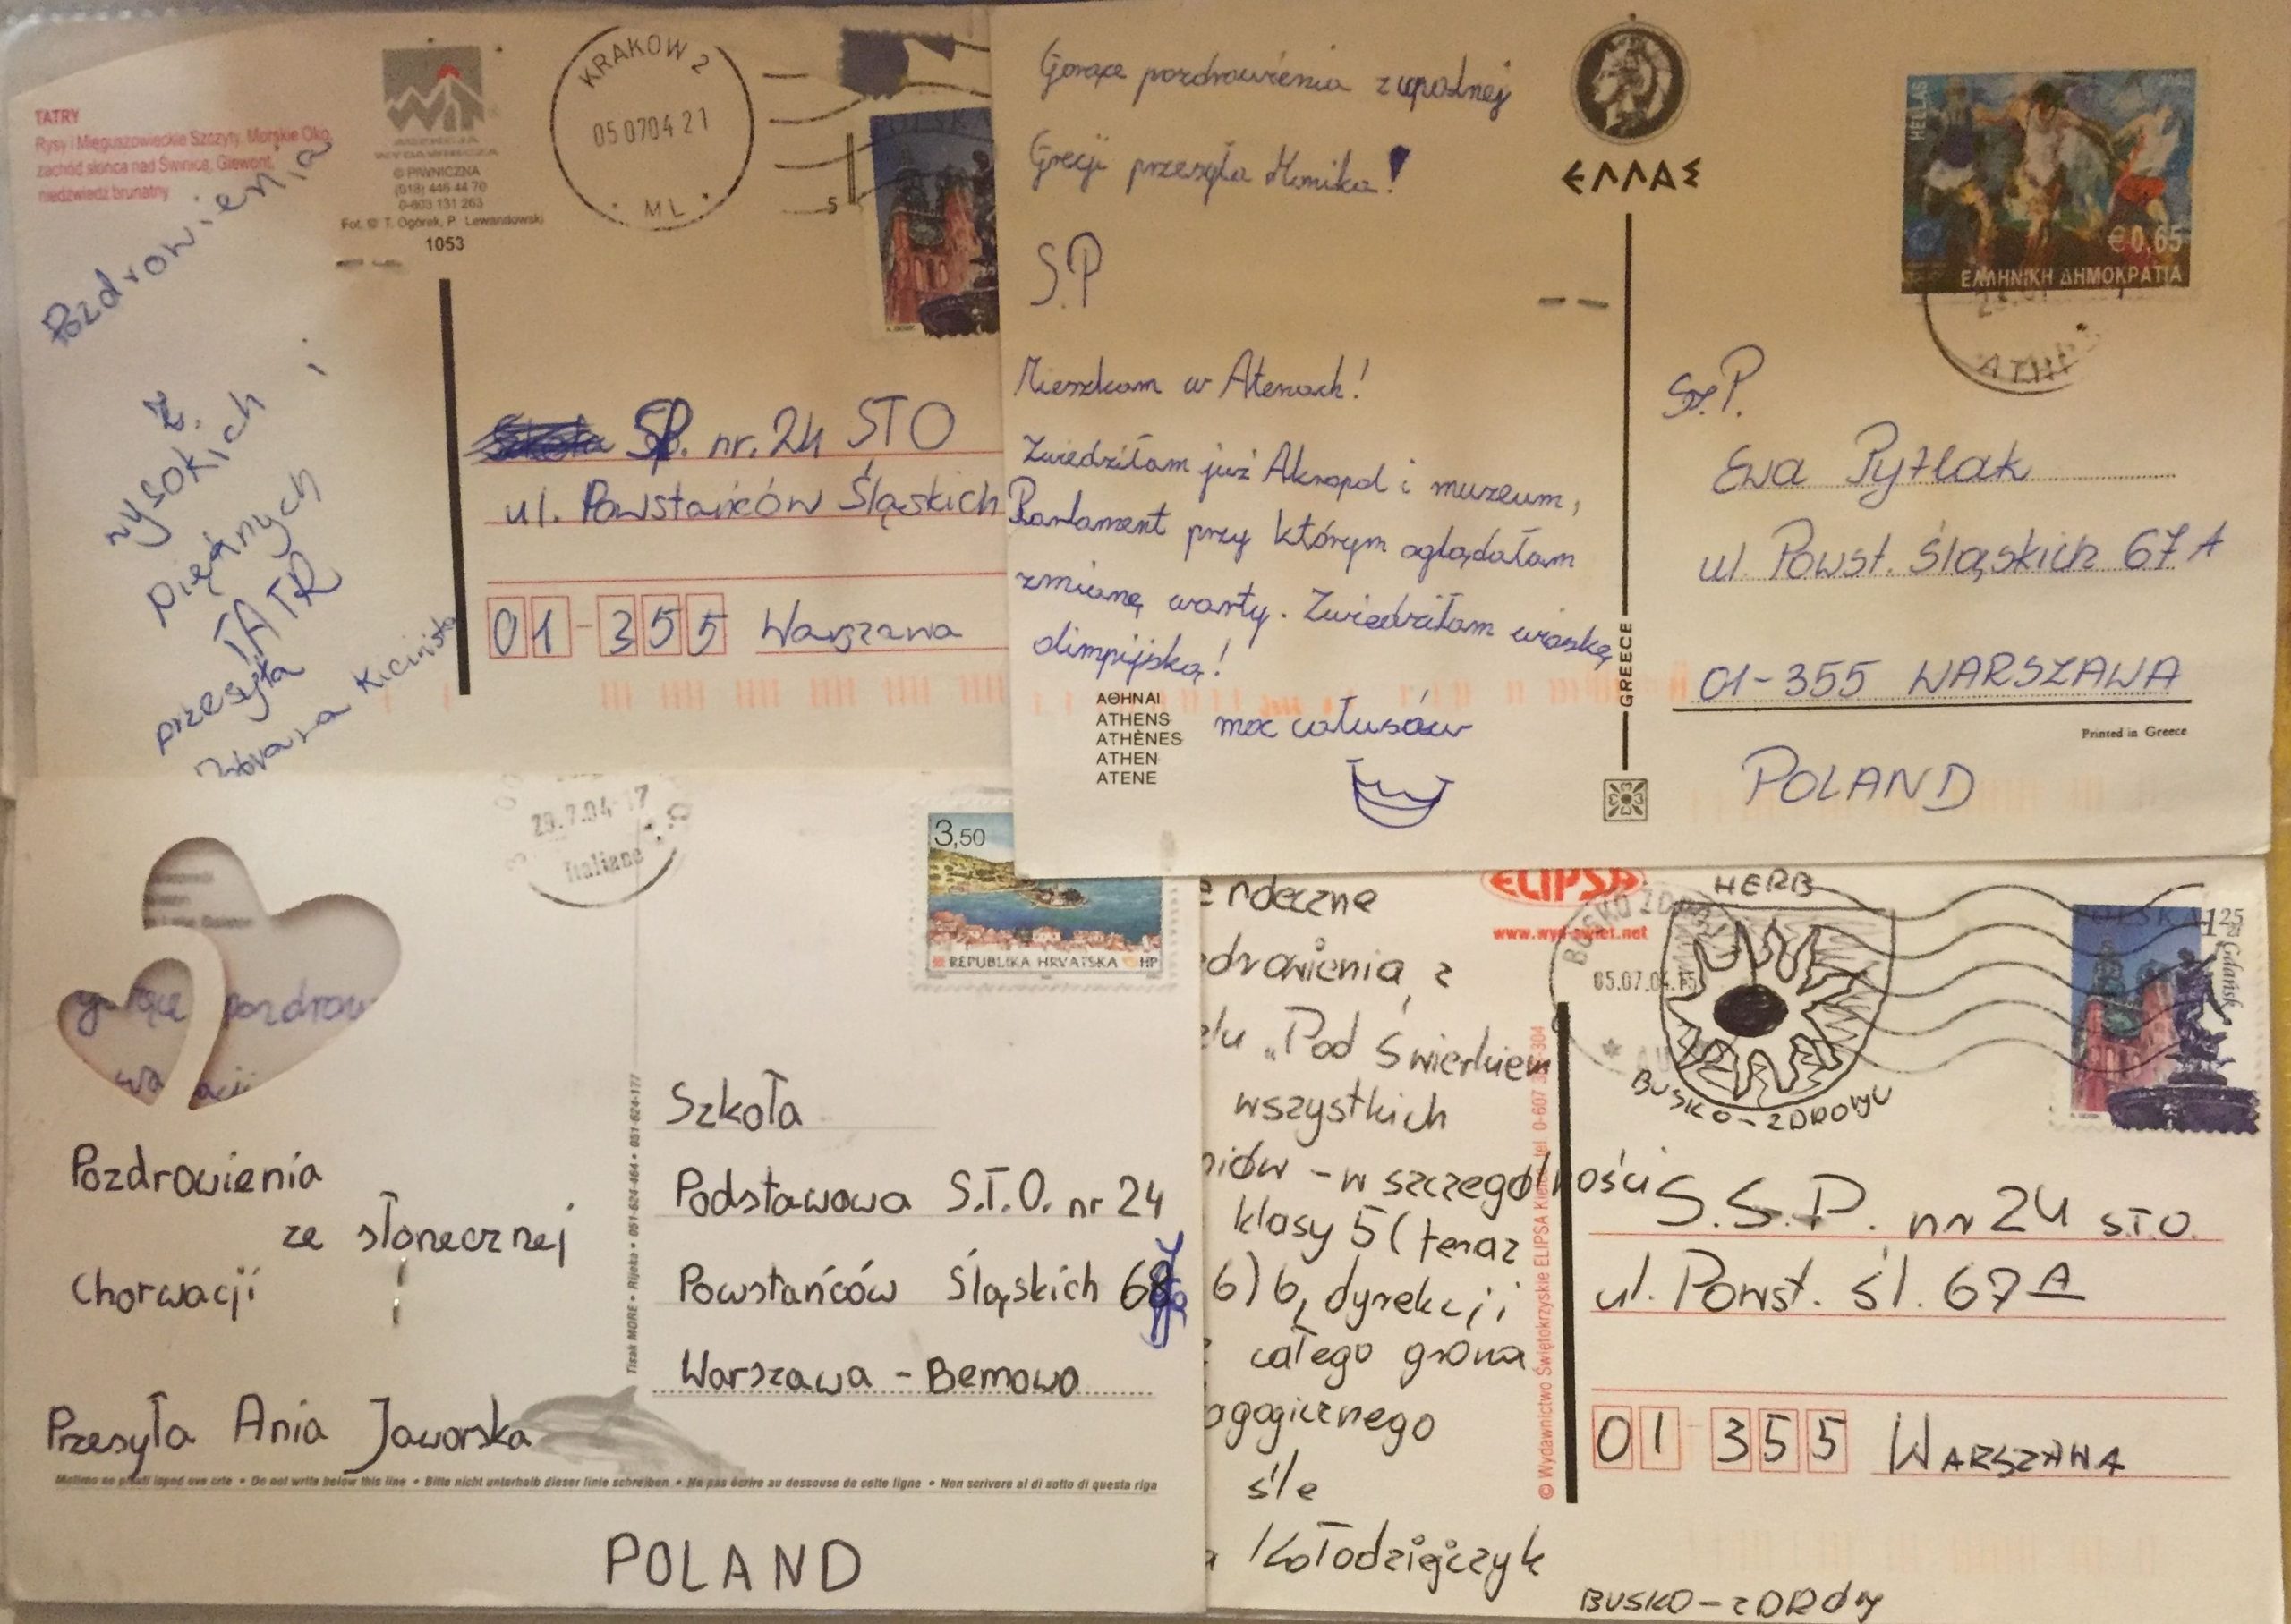 TATRY
Rysy i Mięguszowieckie Szczyty, Morskie Oko,
zachód słońca nad Świnicą, Giewont,
niedźwiedź brunatny
AGENCJA
WYDAWNICZA
© PIWNICZNA
(018) 446 44 70
0-603 131 263
Fot. © T. Ogórek, P. Lewandowski
1053
KRAKÓW 2
05 07 04 21
ML
5
POLSKA
Pozdrowienia
z
wysokich i
pięknych
TATR
przesyła
Kicińska
SP. nr. 24 STO
ul. Powstańców Śląskich
01-355 Warszawa
Gorące pozdrowienia z upalnej
Grecji przesyła Monika!
S.P
Mieszkam w Atenach!
Zwiedziłam już Akropol i muzeum,
Parlament przy którym oglądałam
zmianę warty. Zwiedziłam wioskę
olimpijską!
moc całusów
ΑΘΗΝΑΙ
ATHENS
ATHÈNES
ATHEN
ATENE
ΕΛΛΑΣ
GREECE
HELLAS
€0,65
ΕΛΛΗΝΙΚΗ ΔΗΜΟΚΡΑΤΙΑ
Sz.P.
Ewa Pytlak
ul. Powst. Śląskich 67A
01-355 WARSZAWA
Printed in Greece
POLAND
29.7.04-17
Italiane
3,50
REPUBLIKA HRVATSKA HP
gorące pozdrow
wa acji
Pozdrowienia
ze słonecznej
Chorwacji
Przesyła Ania Jaworska
Tisak MORE • Rijeka • 051-624-464 • 051-624-177
Szkoła
Podstawowa S.T.O. nr 24
Powstańców Śląskich 67a
Warszawa - Bemowo
Molimo ne pisati ispod ove crte • Do not write below this line • Bitte nicht unterhalb dieser linie schreiben • Ne pas écrire au dessouse de cette ligne • Non scrivere al di sotto di questa riga
POLAND
erdeczne
zdrowienia z
elu „Pod Świerkiem
wszystkich
niów - w szczególności
klasy 5 (teraz
6) b, dyrekcji
całego grona
agogicznego
śle
a Kołodziejczyk
ELIPSA
www.wyd-swiet.net
© Wydawnictwo Świętokrzyskie ELIPSA Kielce tel. 0-607
BUSKO ZDRÓJ
05.07.04.15
HERB
BUSKO-ZDROJU
POLSKA 1 25
Gdańsk
S.S.P. nr 24 STO.
ul. Powst. Śl. 67 A
01-355 WARSZAWA
BUSKO-ZDRÓJ